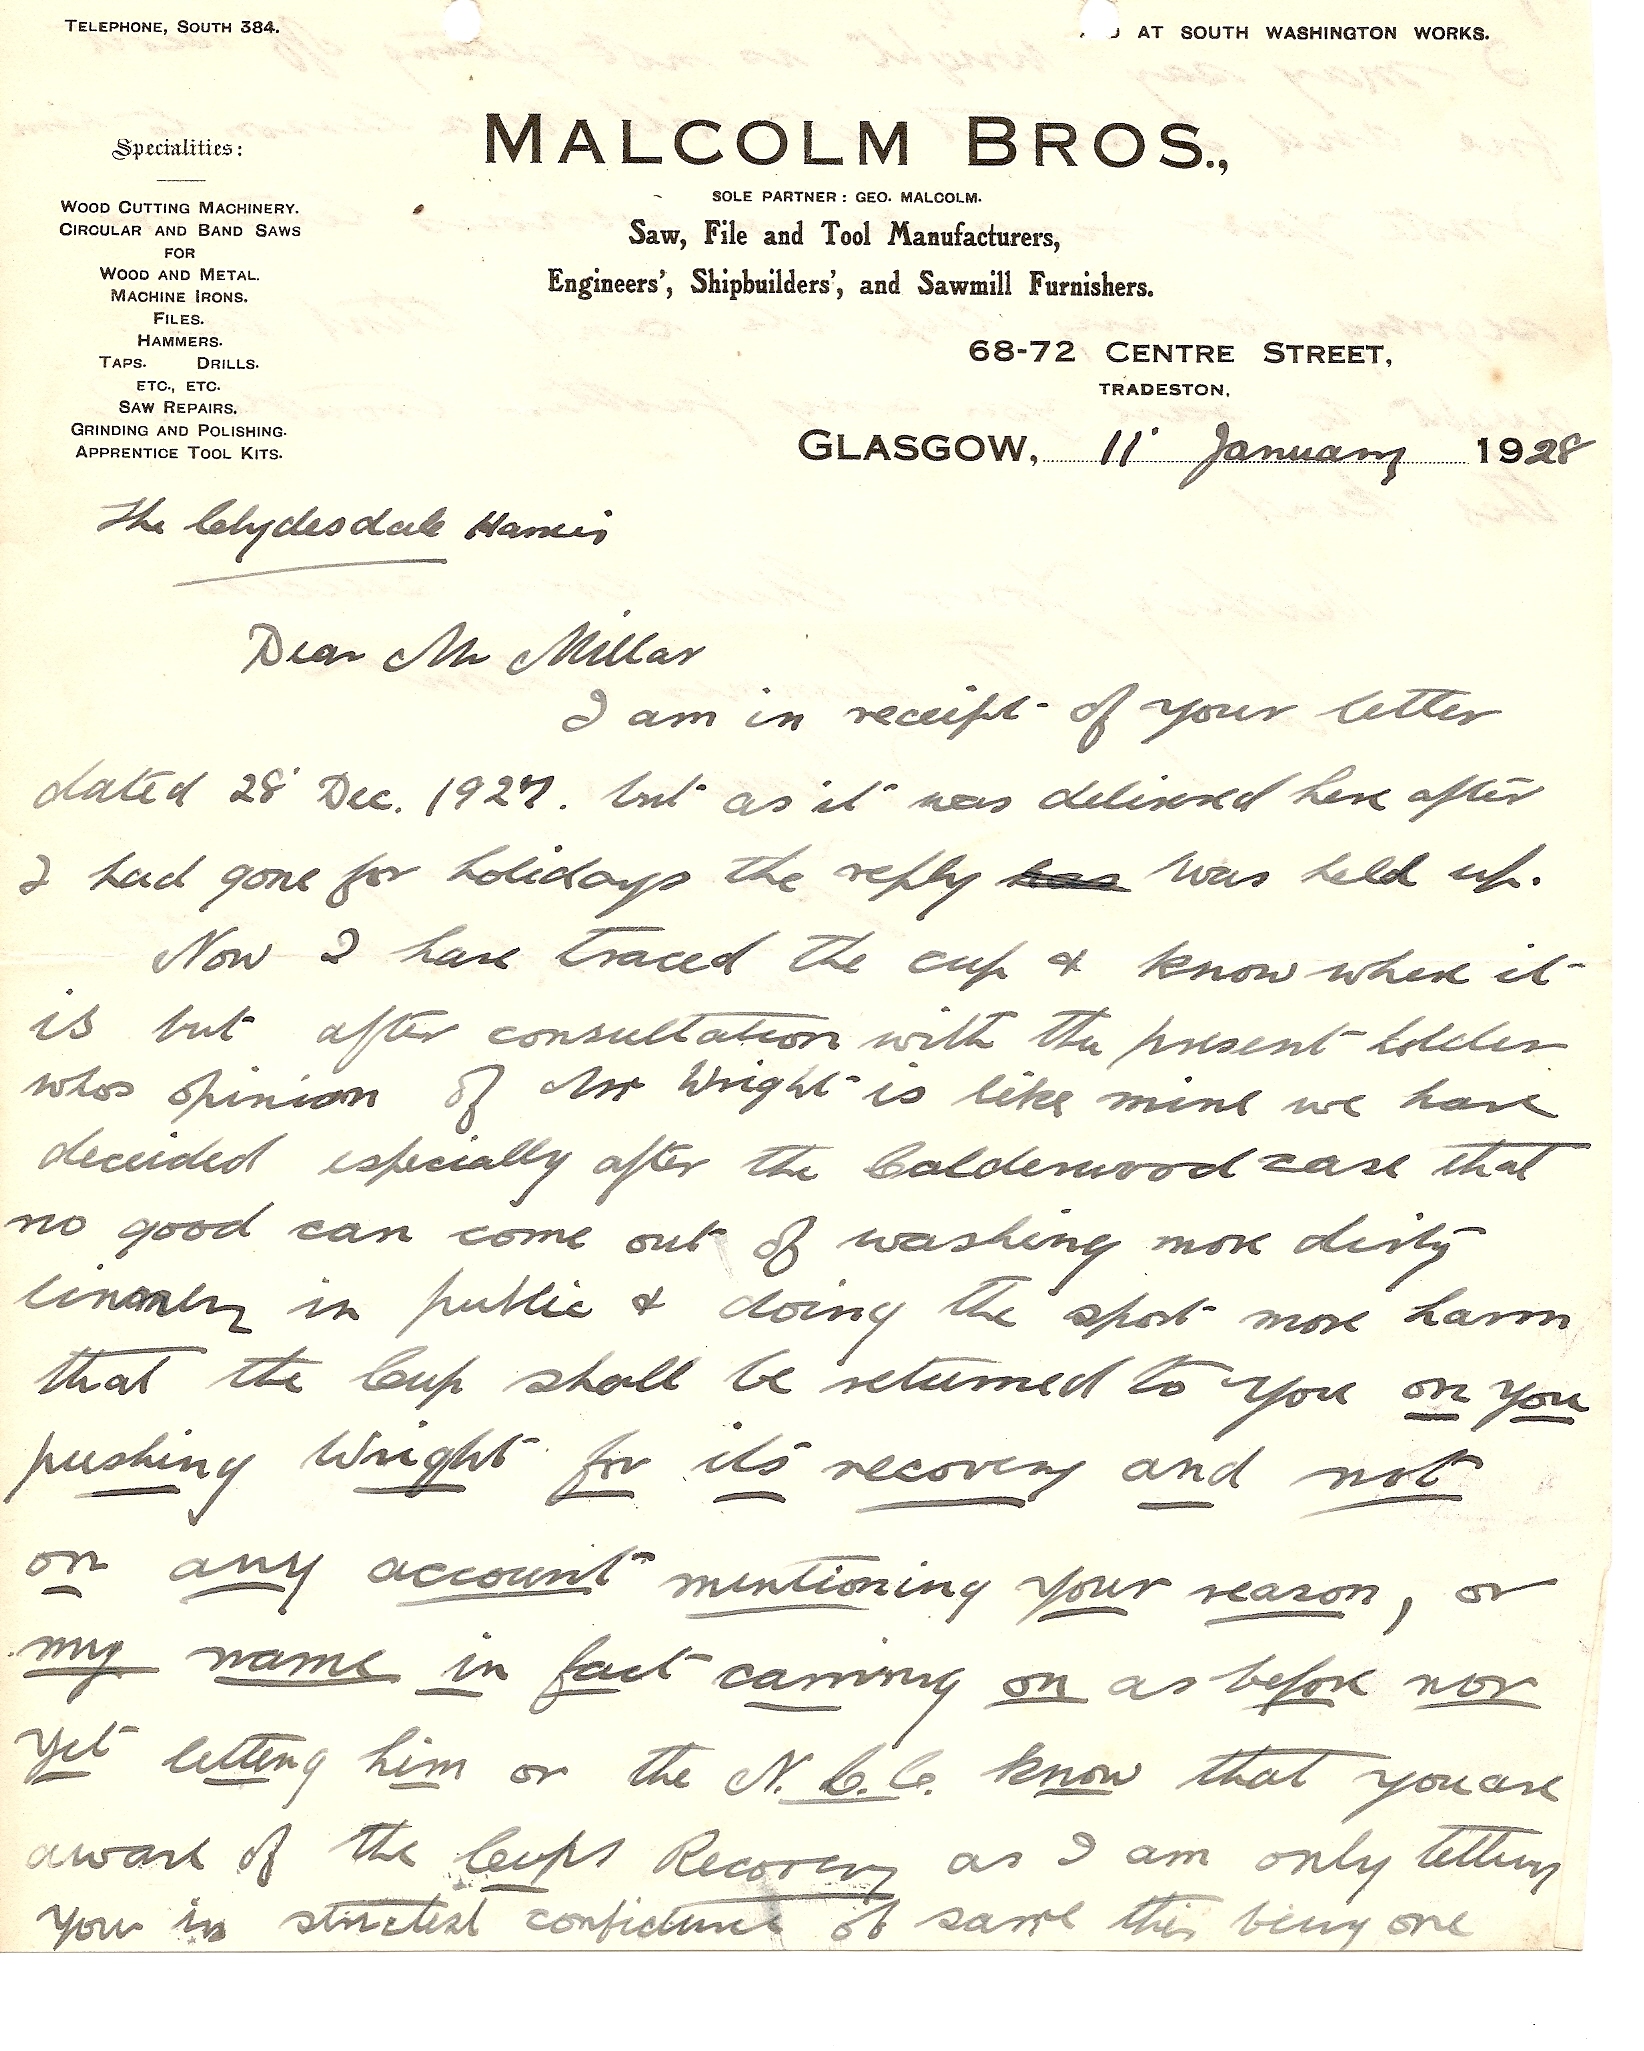 TELEPHONE, SOUTH 384.
AT SOUTH WASHINGTON WORKS.
MALCOLM BROS.,
SOLE PARTNER: GEO. MALCOLM.
Saw, File and Tool Manufacturers,
Engineers', Shipbuilders', and Sawmill Furnishers.
68-72 CENTRE STREET,
TRADESTON.
Specialities:
WOOD CUTTING MACHINERY.
CIRCULAR AND BAND SAWS
FOR
WOOD AND METAL.
MACHINE IRONS.
FILES.
HAMMERS.
TAPS. DRILLS.
ETC., ETC.
SAW REPAIRS.
GRINDING AND POLISHING.
APPRENTICE TOOL KITS.
GLASGOW, 11 January 1928
The Clydesdale Harriers
Dear Mr Millar
I am in receipt of your letter
dated 28 Dec. 1927. but as it was delivered here after
I had gone for holidays the reply has was held up.
Now I have traced the cup & know where it
is but after consultation with the present holder
whos opinion of Mr Wright is like mine we have
decided especially after the Calderwood case that
no good can come out of washing more dirty
in public & doing the sport more harm
that the Cup shall be returned to you on you
pushing Wright for its recovery and not
on any account mentioning your reason, or
my name in fact carring on as before nor
yet letting him or the N.C.C. know that you are
aware of the Cups Recovery as I am only telling
you in strictest confidence of same this being one